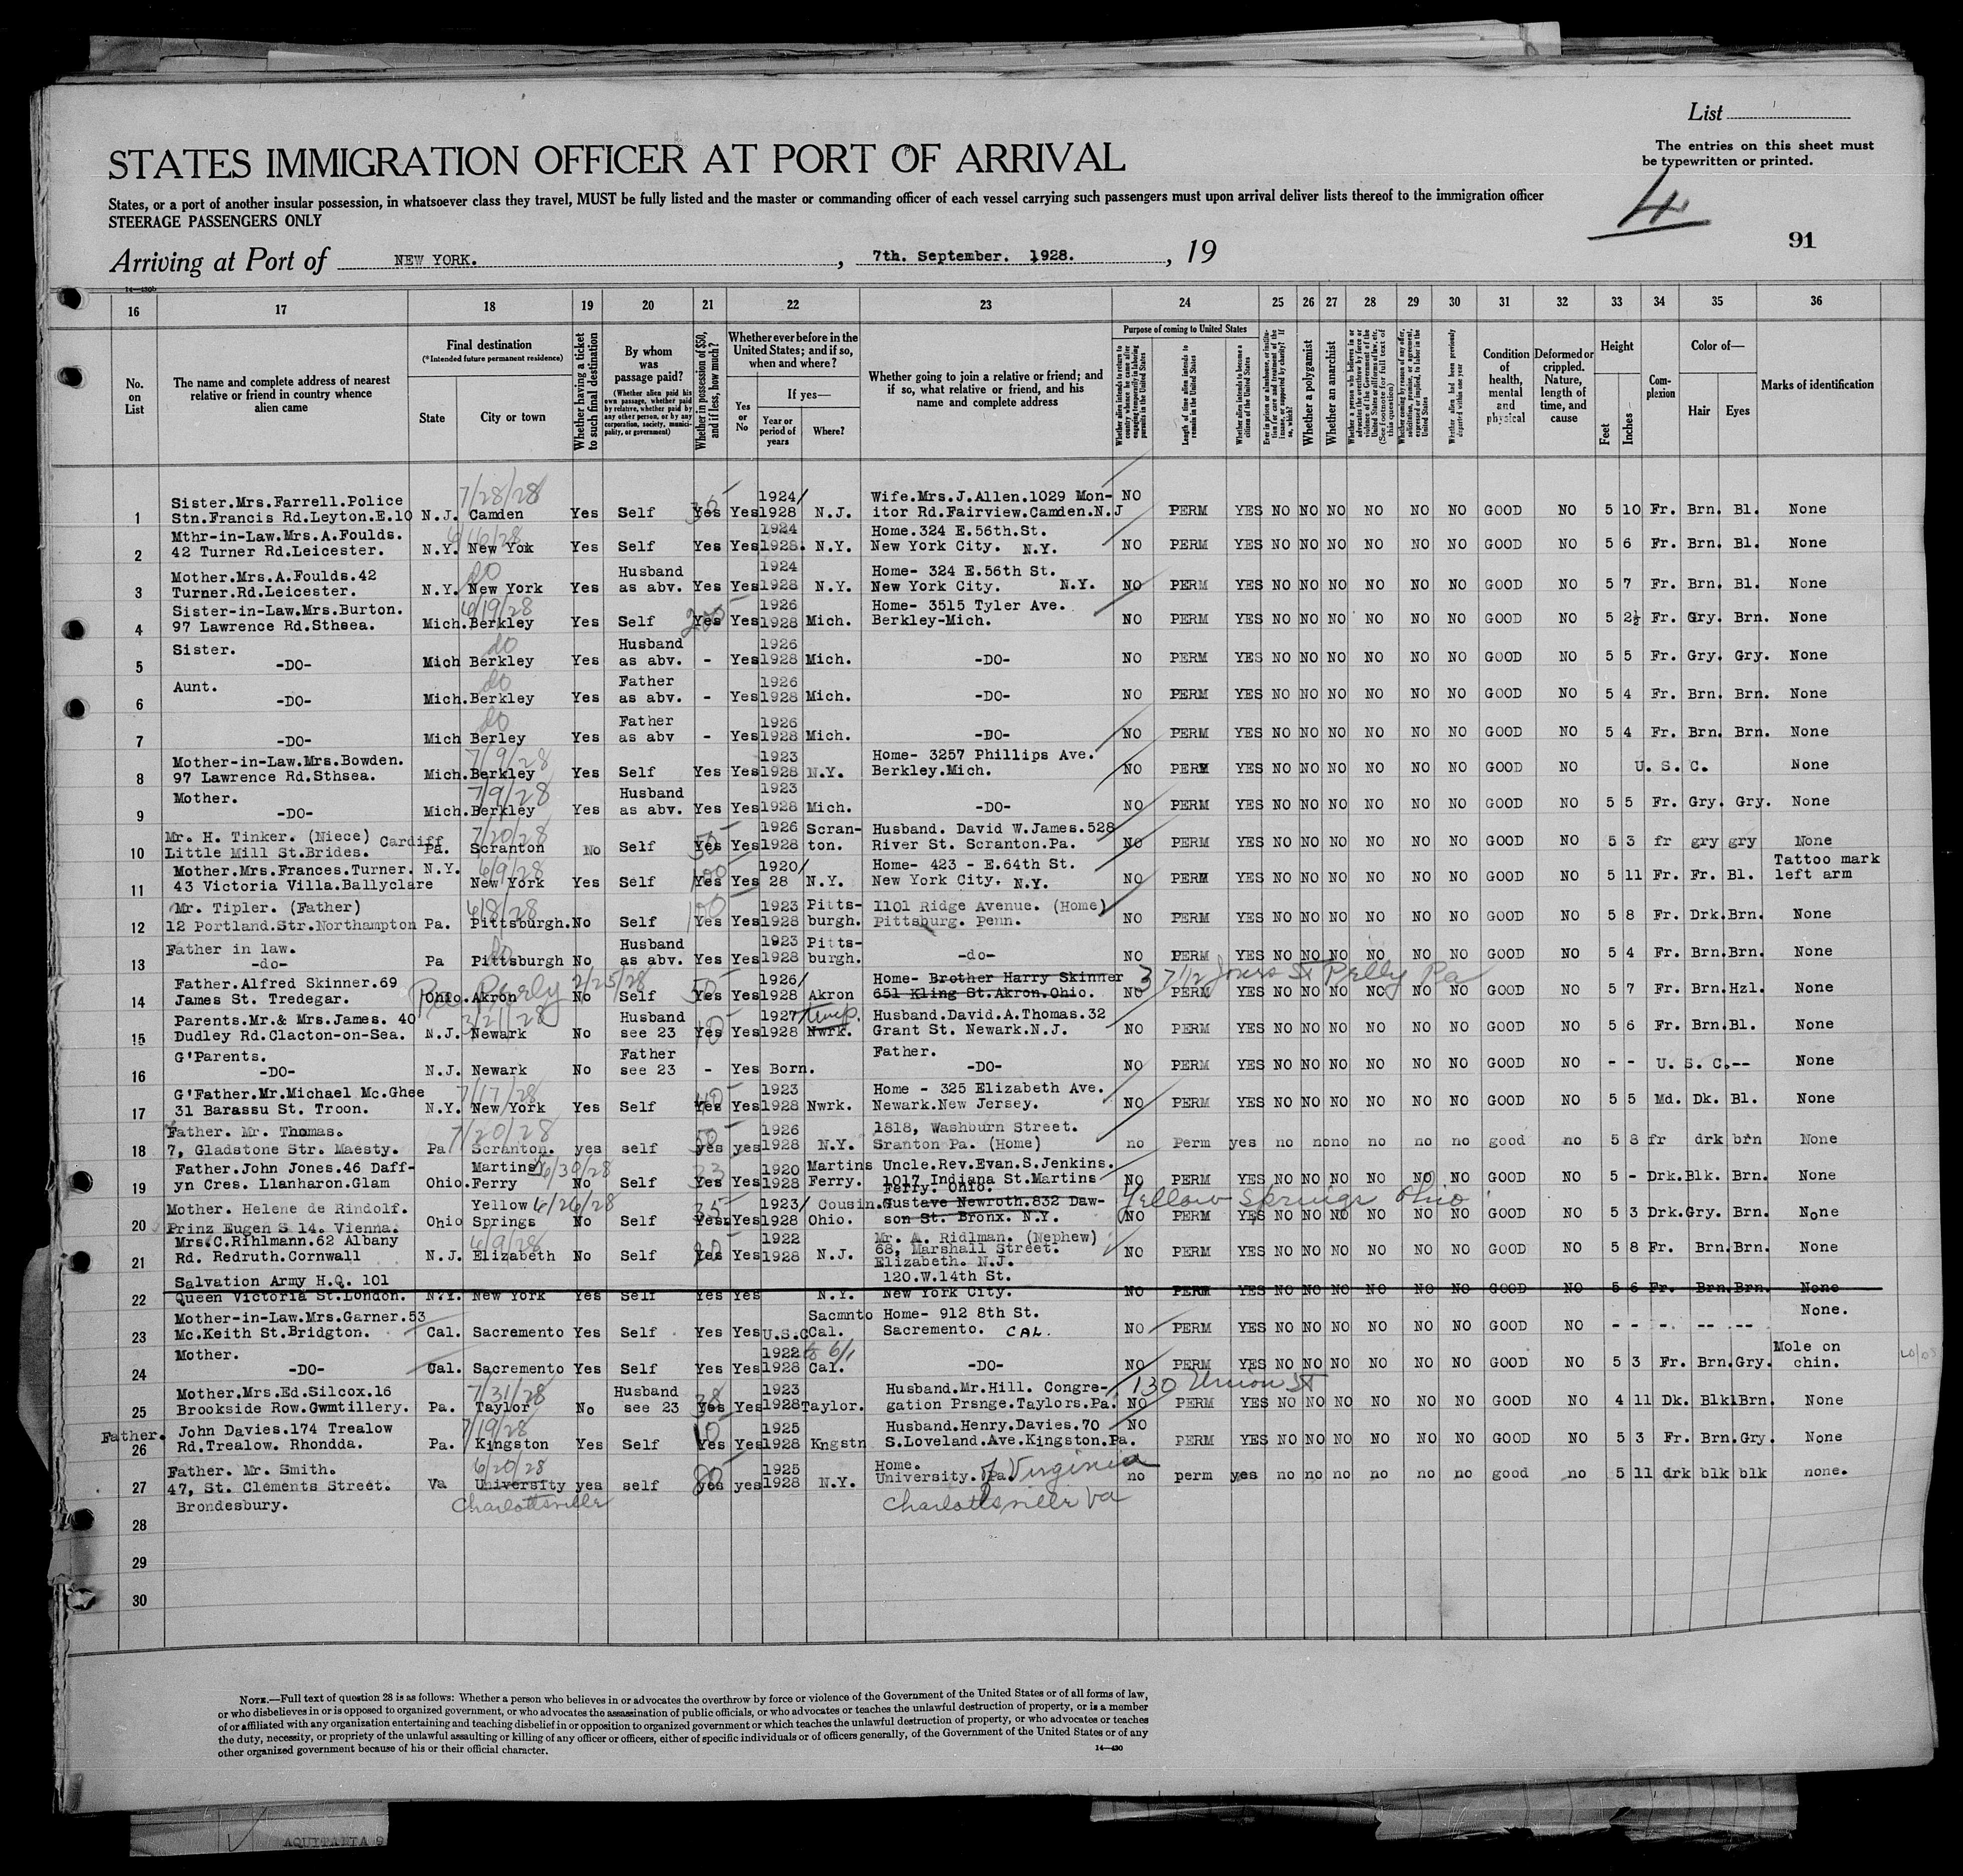 List
The entries on this sheet must
be typewritten or printed.
STATES IMMIGRATION OFFICER AT PORT OF ARRIVAL
States, or a port of another insular possession, in whatsoever class they travel, MUST be fully listed and the master or commanding officer of each vessel carrying such passengers must upon arrival deliver lists thereof to the immigration officer
STEERAGE PASSENGERS ONLY
4
91
Arriving at Port of NEW YORK. , 7th. September. 1928. , 19
16 17 18 19 20 21 22 23 24 25 26 27 28 29 30 31 32 33 34 35 36
No. on List
The name and complete address of nearest relative or friend in country whence alien came
Final destination
(*Intended future permanent residence)
State
City or town
Whether having a ticket to such final destination
By whom was passage paid?
(Whether alien paid his own passage, whether paid by relative, whether paid by any other person, or by any corporation, society, municipality, or government)
Whether in possession of $50, and if less, how much?
Whether ever before in the United States; and if so, when and where?
Yes or No
If yes—
Year or period of years
Where?
Whether going to join a relative or friend; and if so, what relative or friend, and his name and complete address
Purpose of coming to United States
Length of time alien intends to remain in the United States
Whether alien intends to become a citizen of the United States
Whether a polygamist
Whether an anarchist
Condition of health, mental and physical
Deformed or crippled. Nature, length of time, and cause
Height
Feet
Inches
Complexion
Color of—
Hair
Eyes
Marks of identification
Sister.Mrs.Farrell.Police 7/28/28 1924/ Wife.Mrs.J.Allen.1029 Mon- NO
1 Stn.Francis Rd.Leyton.E.10 N.J. Camden Yes Self Yes Yes 1928 N.J. itor Rd.Fairview.Camden.N.J PERM YES NO NO NO NO NO NO GOOD NO 5 10 Fr. Brn. Bl. None
Mthr-in-Law.Mrs.A.Foulds. 1924 Home.324 E.56th.St.
2 42 Turner Rd.Leicester. N.Y. New Yok Yes Self Yes Yes 1928. N.Y. New York City. N.Y. NO PERM YES NO NO NO NO NO NO GOOD NO 5 6 Fr. Brn. Bl. None
Mother.Mrs.A.Foulds.42 do Husband 1924 Home- 324 E.56th St.
3 Turner.Rd.Leicester. N.Y. New York Yes as abv. Yes Yes 1928 N.Y. New York City. N.Y. NO PERM YES NO NO NO NO NO NO GOOD NO 5 7 Fr. Brn. Bl. None
Sister-in-Law.Mrs.Burton. 6/19/28 1926 Home- 3515 Tyler Ave.
4 97 Lawrence Rd.Sthsea. Mich. Berkley Yes Self 200 Yes Yes 1928 Mich. Berkley-Mich. NO PERM YES NO NO NO NO NO NO GOOD NO 5 2½ Fr. Gry. Brn. None
Sister. do Husband 1926
5 -DO- Mich Berkley Yes as abv. - Yes 1928 Mich. -DO- NO PERM YES NO NO NO NO NO NO GOOD NO 5 5 Fr. Gry. Gry. None
Aunt. do Father 1926
6 -DO- Mich. Berkley Yes as abv. - Yes 1928 Mich. -DO- NO PERM YES NO NO NO NO NO NO GOOD NO 5 4 Fr. Brn. Brn. None
do Father 1926
7 -DO- Mich Berley Yes as abv - Yes 1928 Mich. -DO- NO PERM YES NO NO NO NO NO NO GOOD NO 5 4 Fr. Brn. Brn. None
Mother-in-Law.Mrs.Bowden. 7/9/28 1923 Home- 3257 Phillips Ave.
8 97 Lawrence Rd.Sthsea. Mich. Berkley Yes Self Yes Yes 1928 N.Y. Berkley.Mich. NO PERM YES NO NO NO NO NO NO GOOD NO U. S. C. None
Mother. 7/9/28 Husband 1923
9 -DO- Mich. Berkley Yes as abv. Yes Yes 1928 Mich. -DO- NO PERM YES NO NO NO NO NO NO GOOD NO 5 5 Fr. Gry. Gry. None
Mr. H. Tinker. (Niece) Cardiff 7/20/28 1926 Scran- Husband. David W.James.528
10 Little Mill St.Brides. Pa. Scranton No Self 50 Yes Yes 1928 ton. River St. Scranton.Pa. NO PERM YES NO NO NO NO NO NO GOOD NO 5 3 fr gry gry None
Mother.Mrs.Frances.Turner. N.Y. 6/9/28 1920/ Home- 423 - E.64th St. Tattoo mark
11 43 Victoria Villa.Ballyclare New York Yes Self 100 Yes Yes 28 N.Y. New York City. N.Y. NO PERM YES NO NO NO NO NO NO GOOD NO 5 11 Fr. Fr. Bl. left arm
Mr. Tipler. (Father) 6/8/28 1923 Pitts- 1101 Ridge Avenue. (Home)
12 12 Portland.Str.Northampton Pa. Pittsburgh. No Self 100 Yes Yes 1928 burgh. Pittsburg. Penn. NO PERM YES NO NO NO NO NO NO GOOD NO 5 8 Fr. Drk. Brn. None
Father in law. do Husband 1923 Pitts-
13 -do- Pa Pittsburgh No as abv. Yes Yes 1928 burgh. -do- NO PERM YES NO NO NO NO NO NO GOOD NO 5 4 Fr. Brn. Brn. None
Father.Alfred Skinner.69 2/25/28 1926/ Home- Brother Harry Skinner
14 James St. Tredegar. Pa Ohio. Akron No Self 50 Yes Yes 1928 Akron 651 Kling St.Akron.Ohio. NO PERM YES NO NO NO NO NO NO GOOD NO 5 7 Fr. Brn. Hzl. None
Parents.Mr.& Mrs.James. 40 3/21/28 Husband 1927 Husband.David.A.Thomas.32
15 Dudley Rd.Clacton-on-Sea. N.J. Newark No see 23 Yes Yes 1928 Nwrk. Grant St. Newark.N.J. NO PERM YES NO NO NO NO NO NO GOOD NO 5 6 Fr. Brn. Bl. None
G'Parents. Father Father.
16 -DO- N.J. Newark No see 23 - Yes Born. -DO- NO PERM YES NO NO NO NO NO NO GOOD NO - - U. S. C.-- None
G'Father.Mr.Michael Mc.Ghee 7/17/28 1923 Home - 325 Elizabeth Ave.
17 31 Barassu St. Troon. N.Y. New York Yes Self 40 Yes Yes 1928 Nwrk. Newark.New Jersey. NO PERM YES NO NO NO NO NO NO GOOD NO 5 5 Md. Dk. Bl. None
Father. Mr. Thomas. 7/20/28 1926 1818, Washburn Street.
18 7, Gladstone Str. Maesty. Pa Scranton. yes self 50 yes yes 1928 N.Y. Sranton Pa. (Home) no Perm yes no no no no no no good no 5 8 fr drk brn None
Father.John Jones.46 Daff- Martins 6/30/28 1920 Martins Uncle.Rev.Evan.S.Jenkins.
19 yn Cres. Llanharon.Glam Ohio. Ferry No Self Yes Yes 1928 Ferry. 1017 Indiana St.Martins NO PERM YES NO NO NO NO NO NO GOOD NO 5 - Drk. Blk. Brn. None
Ferry. Ohio.
Mother. Helene de Rindolf. Yellow 6/26/28 1923/ Cousin. Gustave Newroth.832 Daw- Yellow Springs Ohio
20 Prinz Eugen S 14. Vienna. Ohio Springs No Self 35 Yes Yes 1928 Ohio. son St. Bronx. N.Y. NO PERM YES NO NO NO NO NO NO GOOD NO 5 3 Drk. Gry. Brn. None
Mrs.C.Rihlmann.62 Albany 6/9/28 1922 Mr. A. Ridlman. (Nephew)
21 Rd. Redruth.Cornwall N.J. Elizabeth No Self Yes Yes 1928 N.J. 68, Marshall Street. NO PERM YES NO NO NO NO NO NO GOOD NO 5 8 Fr. Brn. Brn. None
Elizabeth. N.J.
Salvation Army H.Q. 101 120.W.14th St.
22 Queen Victoria St.London. N.Y. New York Yes Self Yes Yes N.Y. New York City. NO PERM YES NO NO NO NO NO NO GOOD NO 5 6 Fr. Brn. Brn. None
Mother-in-Law.Mrs.Garner.53 Sacmnto Home- 912 8th St. None.
23 Mc.Keith St.Bridgton. Cal. Sacremento Yes Self Yes Yes U.S.C Cal. Sacremento. CAL. NO PERM YES NO NO NO NO NO NO GOOD NO - - -. -- --
Mother. 1922 Mole on
24 -DO- Cal. Sacremento Yes Self Yes Yes 1928 Cal. -DO- NO PERM YES NO NO NO NO NO NO GOOD NO 5 3 Fr. Brn. Gry. chin.
Mother.Mrs.Ed.Silcox.16 7/31/28 Husband 1923 Husband.Mr.Hill. Congre- 130 Union St
25 Brookside Row.Gwmtillery. Pa. Taylor No see 23 Yes Yes 1928 Taylor. gation Prsnge.Taylors.Pa. NO PERM YES NO NO NO NO NO NO GOOD NO 4 11 Dk. Blk Brn. None
Father. John Davies.174 Trealow 7/19/28 1925 Husband.Henry.Davies.70 NO
26 Rd.Trealow. Rhondda. Pa. Kingston Yes Self 10 Yes Yes 1928 Kngstn S.Loveland.Ave.Kingston.Pa. PERM YES NO NO NO NO NO NO GOOD NO 5 3 Fr. Brn. Gry. None
Father. Mr. Smith. 6/20/28 1925 Home.
27 47, St. Clements Street. Va University yes self 80 yes yes 1928 N.Y. University. of Virginia no perm yes no no no no no no good no 5 11 drk blk blk none.
Brondesbury. Charlottsville Charlottsville Va
28
29
30
NOTE.—Full text of question 28 is as follows: Whether a person who believes in or advocates the overthrow by force or violence of the Government of the United States or of all forms of law,
or who disbelieves in or is opposed to organized government, or who advocates the assassination of public officials, or who advocates or teaches the unlawful destruction of property, or is a member
of or affiliated with any organization entertaining and teaching disbelief in or opposition to organized government or which teaches the unlawful destruction of property, or who advocates or teaches
the duty, necessity, or propriety of the unlawful assaulting or killing of any officer or officers, either of specific individuals or of officers generally, of the Government of the United States or of any
other organized government because of his or their official character.
14—430
AQUITANIA 9